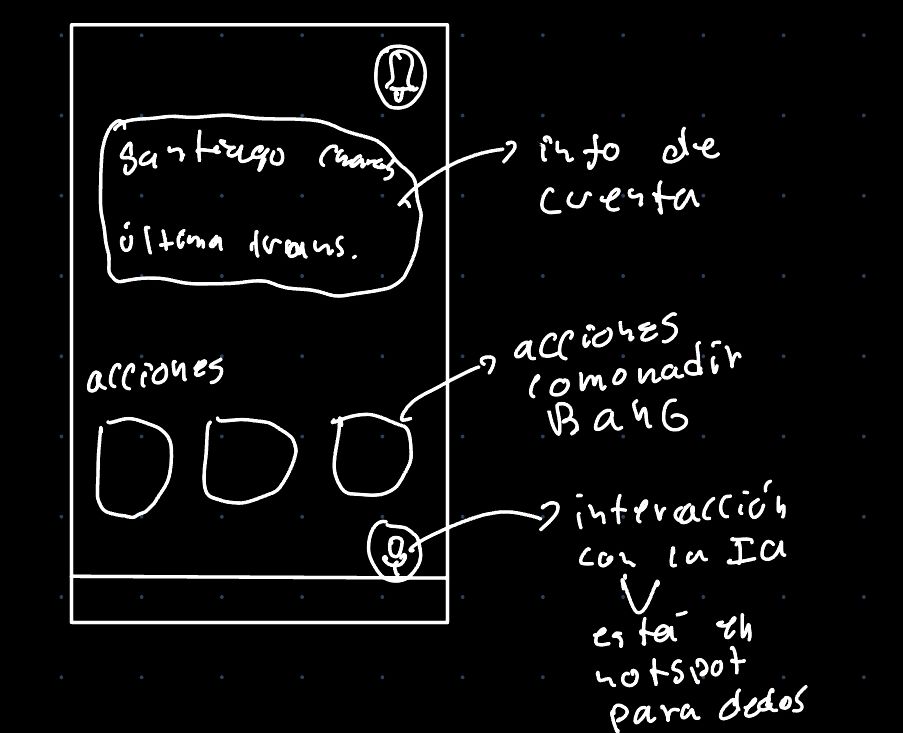 Santiago
última trans.
info de
cuenta
acciones
acciones
como
BanG
interacción
con la IA
está en
hotspot
para dedos